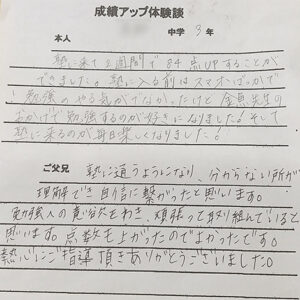 成績アップ体験談
本人
中学 3 年
塾に来て2週間で84点UPすることが
できました。塾に入る前はスマホばっかで
勉強のやる気がでなかったけど金員先生の
おかげで勉強するのが好きになりました！そして
塾に来るのが毎日楽しくなりました！
ご父兄
塾に通うようになり、分からない所が
理解でき自信に繋がったと思います。
勉強への意欲もわき、頑張って取り組んでいると
思います。点数も上がったのでよかったです。
熱心にご指導頂きありがとうございました。